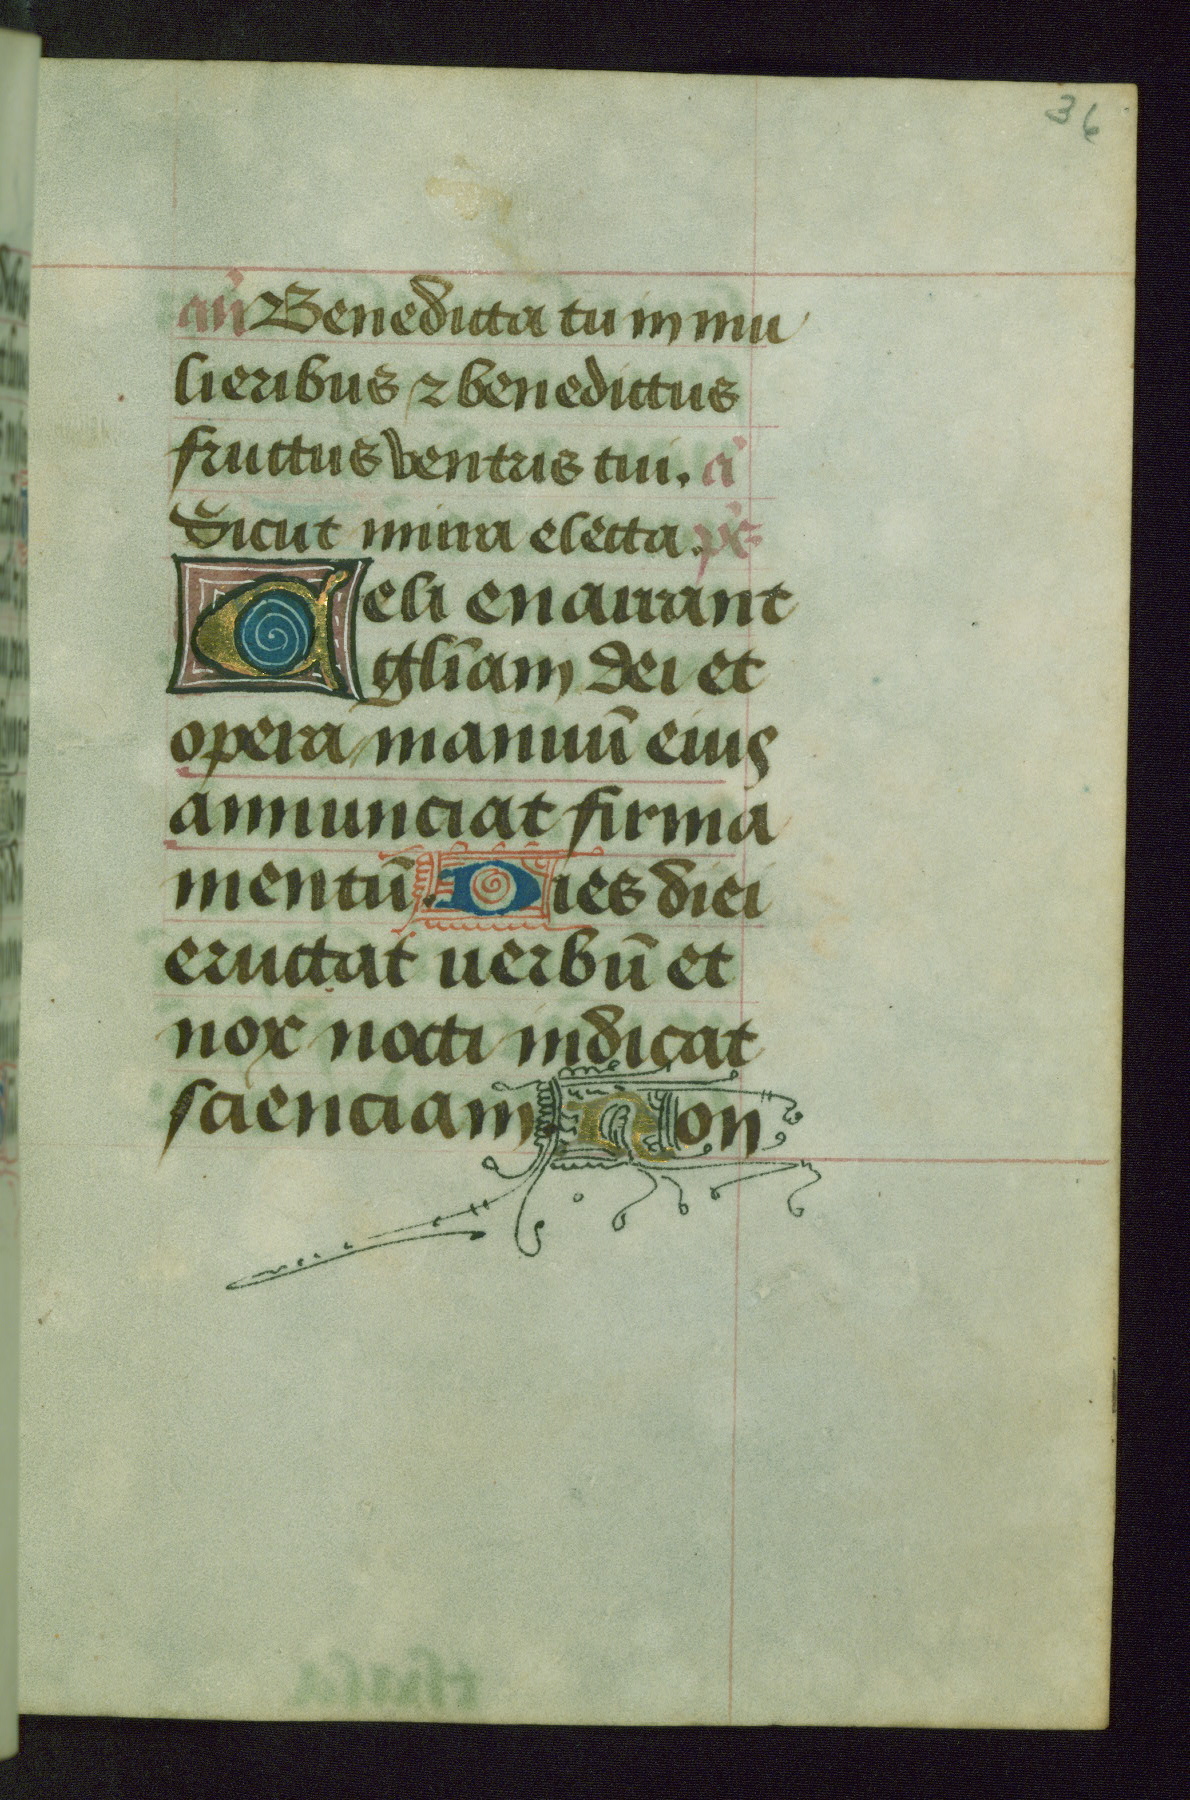 36
an̄ Benedicta tu in mu
lieribus ⁊ benedictus
fructus ventris tui. a᷑
Sicut mirra electa. ps̄
Celi enarrant
gl̄iam dei et
opera manuū eius
annunciat firma
mentū. Dies diei
eructat uerbū et
nox nocti indicat
scienciam. Non